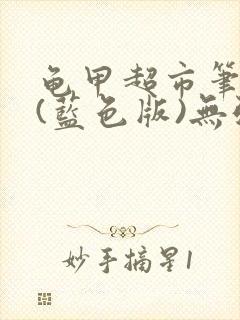 龟甲超市筆
(藍色版)無
妙手摘星1